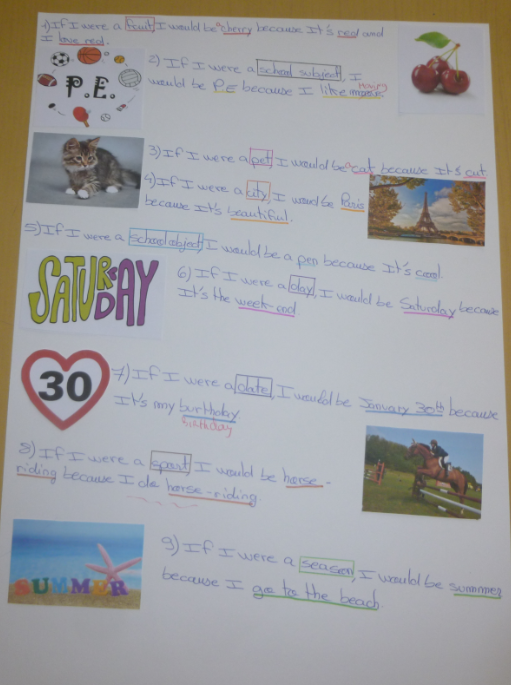 1) If I were a fruit, I would be a cherry because It's red and
I love red.
P.E.
2) If I were a school subject, I
would be P.E because I like
Moving
3) If I were a pet, I would be a cat because It's cut
4) If I were a city, I would be Paris
because It's beautiful.
5) If I were a school object, I would be a pen because It's cool.
SATURDAY
6) If I were a day, I would be Saturday because
It's the week-end
30
7) If I were a date, I would be January 30th because
It's my burthday
Birthday
8) If I were a sport, I would be horse-
riding because I do horse-riding
SUMMER
9) If I were a season, I would be summer
because I go to the beach.